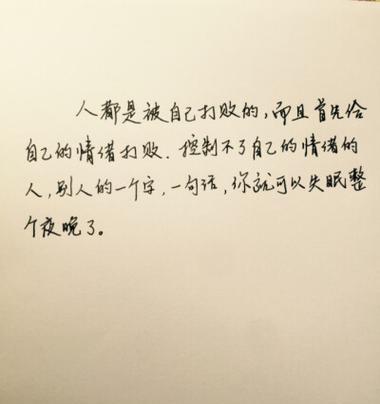 人都是被自己打败的，而且首先给
自己的情绪打败．控制不了自己的情绪的
人，别人的一个字，一句话，你就可以失眠整
个夜晚了。